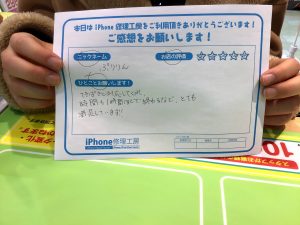 本日は iPhone 修理工房をご利用頂きありがとうございます!
ご感想をお願いします!
ニックネーム
お店の評価
☆☆☆☆☆
ぷりりん
ひとことお願いします!
てきぱきと対応してくれ、
時間も1時間ほどで終わるなど、とても
満足しています!!
iPhone修理工房
スタッフが
10